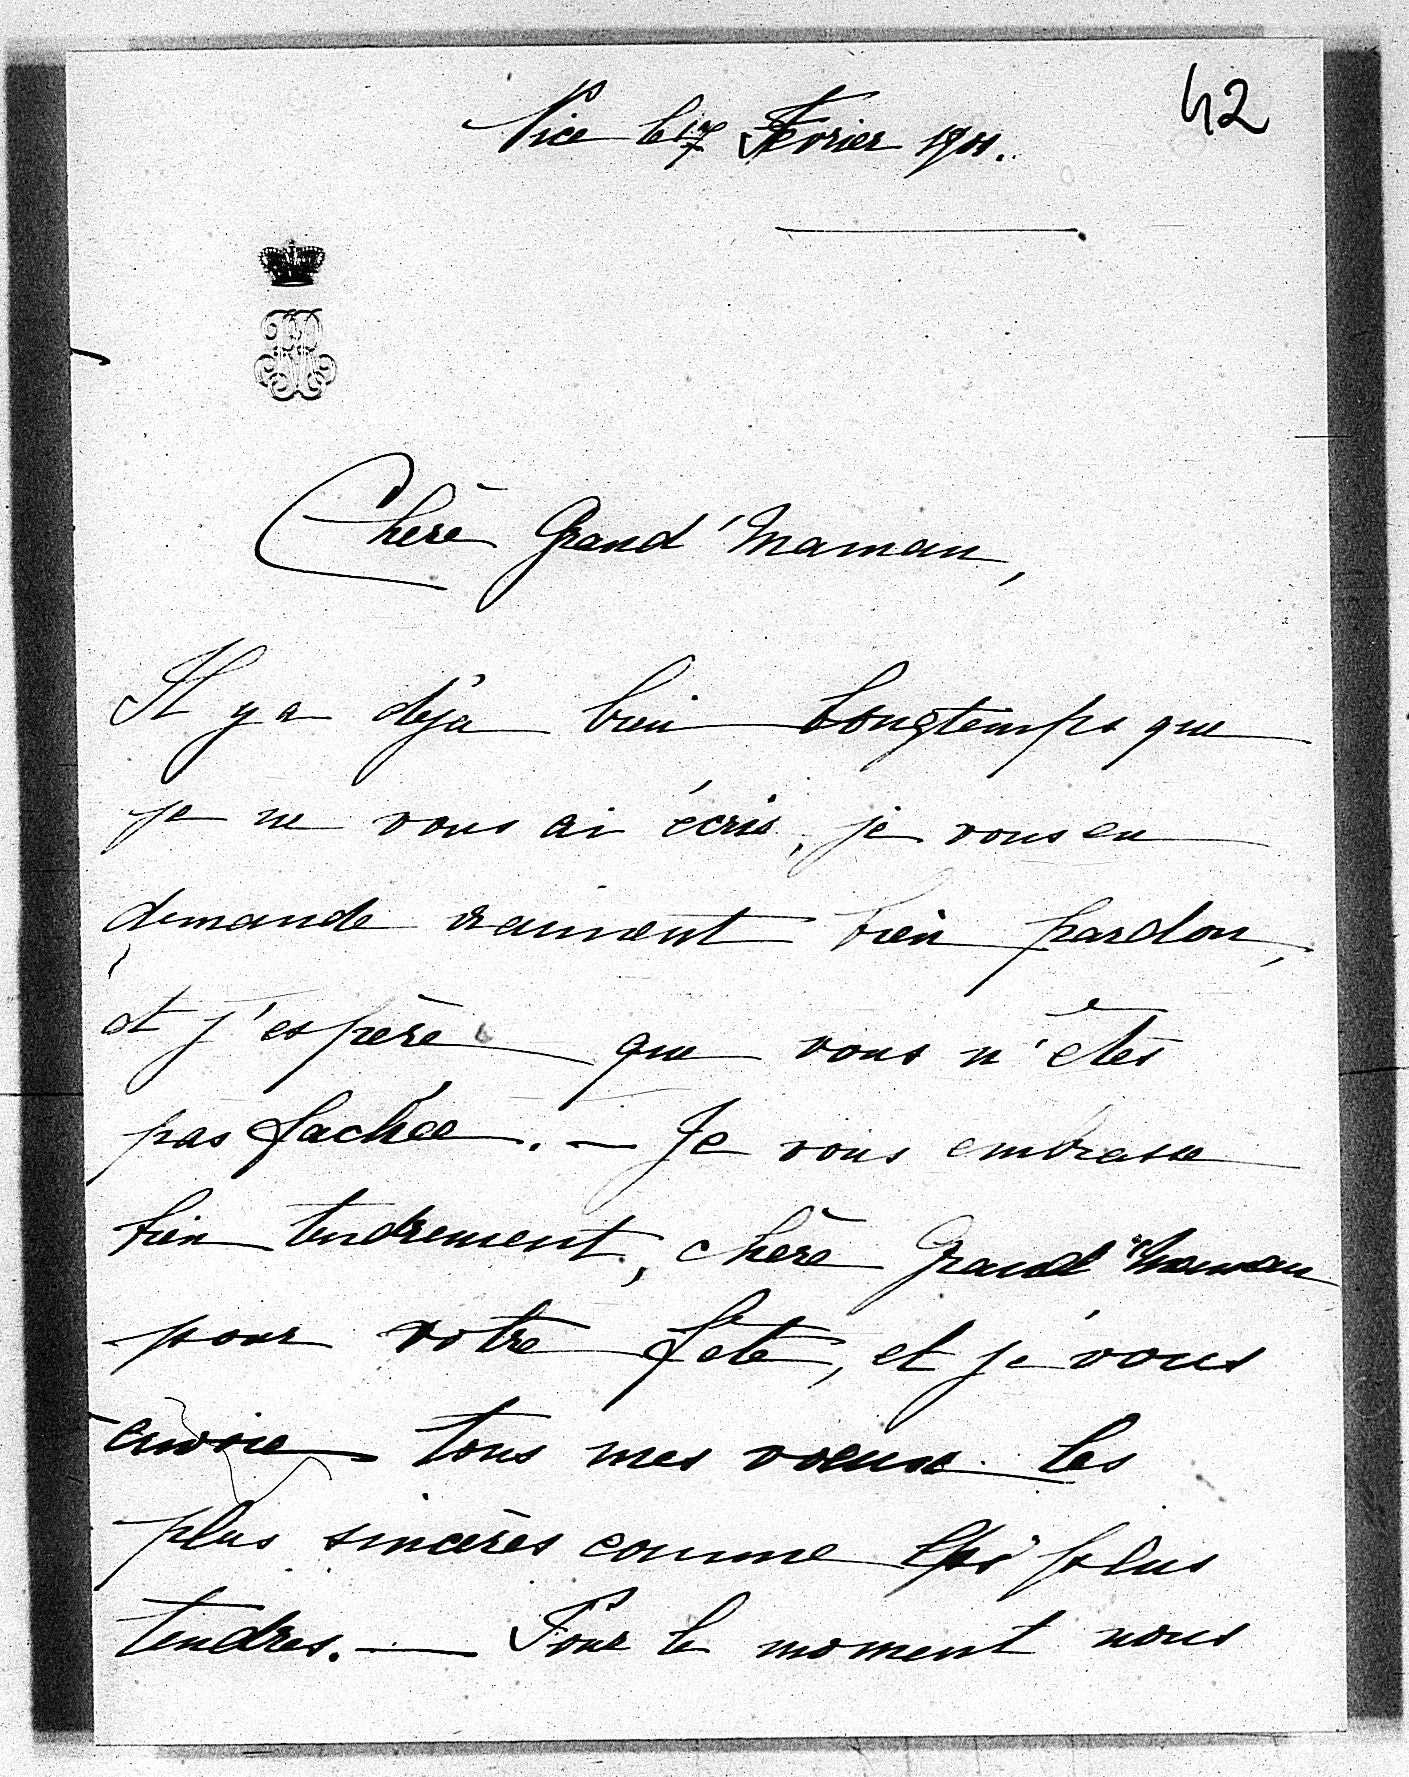 42
Nice le 17 Fevrier 1901.
Chère Grand'Maman,
Il y a déjà bien longtemps que
je ne vous ai écris, je vous en
demande vraiment bien pardon,
et j'espère que vous n'êtes
pas fachée. — Je vous embrasse
bien tendrement, chère Grand'Maman
pour votre fête, et je vous
envoie tous mes voeux les
plus sincères comme les plus
tendres. — Pour le moment nous